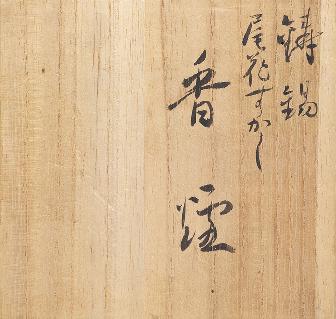 鋳錫
尾花すかし
香炉